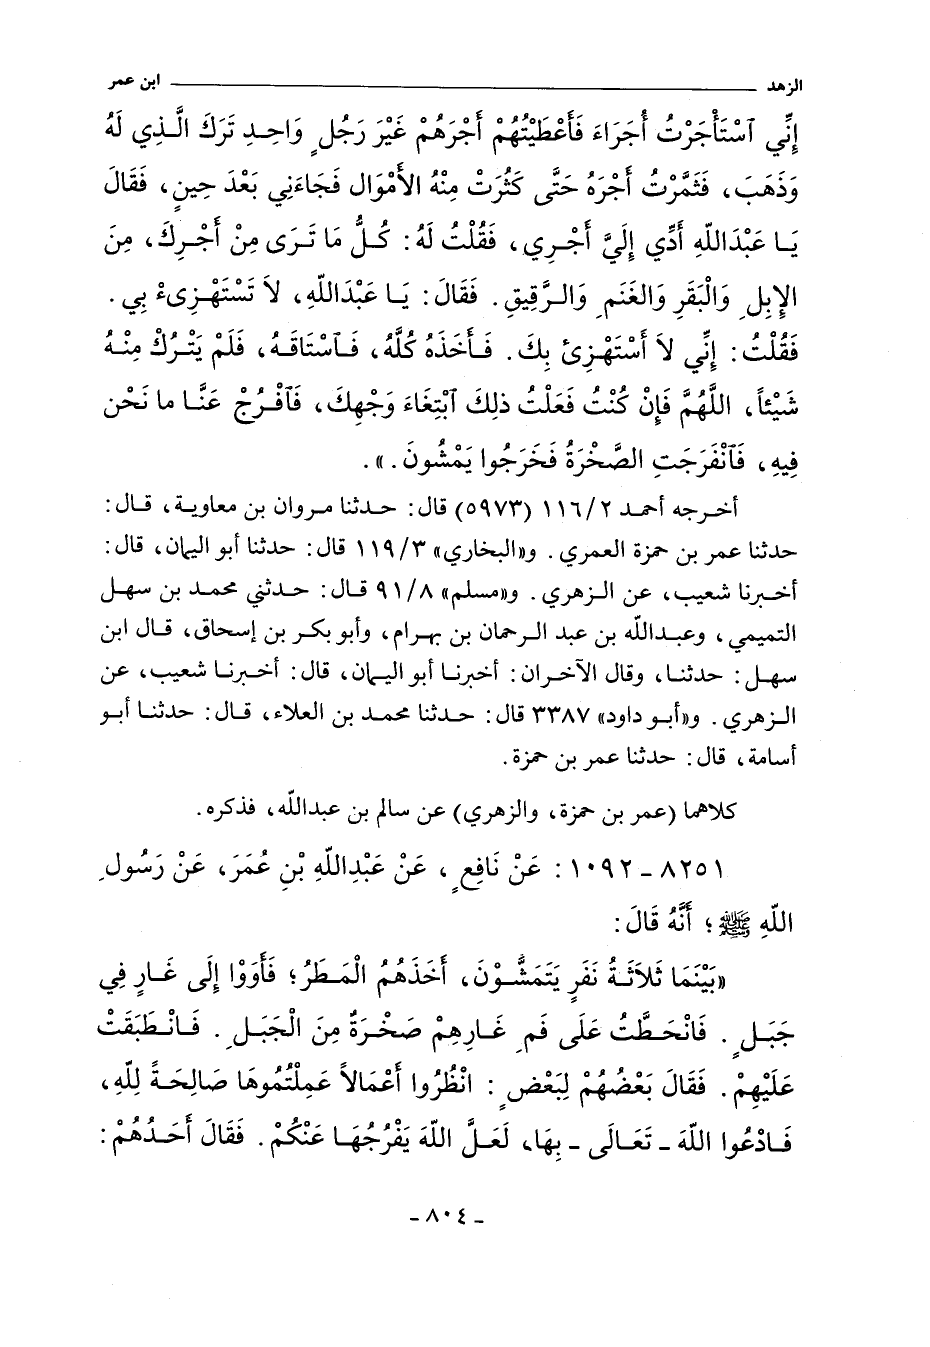 الزهد ابن عمر
إِنِّي ٱسْتَأْجَرْتُ أُجَرَاءَ فَأَعْطَيْتُهُمْ أَجْرَهُمْ غَيْرَ رَجُلٍ وَاحِدٍ تَرَكَ الَّذِي لَهُ
وَذَهَبَ، فَثَمَّرْتُ أَجْرَهُ حَتَّى كَثُرَتْ مِنْهُ الأَمْوَالُ فَجَاءَنِي بَعْدَ حِينٍ، فَقَالَ
يَا عَبْدَاللّهِ أَدِّي إِلَيَّ أَجْرِي، فَقُلْتُ لَهُ: كُلُّ مَا تَرَى مِنْ أَجْرِكَ، مِنَ
الإِبِلِ وَالْبَقَرِ وَالغَنَمِ وَالرَّقِيقِ. فَقَالَ: يَا عَبْدَاللّهِ، لاَ تَسْتَهْزِىءْ بِي.
فَقُلْتُ: إِنِّي لاَ أَسْتَهْزِئُ بِكَ. فَأَخَذَهُ كُلَّهُ، فَٱسْتَاقَهُ، فَلَمْ يَتْرُكْ مِنْهُ
شَيْئاً، اللَّهُمَّ فَإِنْ كُنْتُ فَعَلْتُ ذلِكَ ٱبْتِغَاءَ وَجْهِكَ، فَٱفْرُجْ عَنَّا ما نَحْن
فِيهِ، فَٱنْفَرَجَتِ الصَّخْرَةُ فَخَرَجُوا يَمْشُونَ.».
أخرجه أحمد ١١٦/٢ (٥٩٧٣) قال: حدثنا مروان بن معاوية، قال:
حدثنا عمر بن حمزة العمري. و«البخاري» ١١٩/٣ قال: حدثنا أبو اليمان، قال:
أخبرنا شعيب، عن الزهري. و«مسلم» ٩١/٨ قال: حدثني محمد بن سهل
التميمي، وعبدالله بن عبد الرحمان بن بهرام، وأبو بكر بن إسحاق، قال ابن
سهل: حدثنا، وقال الآخران: أخبرنا أبو اليمان، قال: أخبرنا شعيب، عن
الزهري. و«أبو داود» ٣٣٨٧ قال: حدثنا محمد بن العلاء، قال: حدثنا أبو
أسامة، قال: حدثنا عمر بن حمزة.
كلاهما (عمر بن حمزة، والزهري) عن سالم بن عبدالله، فذكره.
٨٢٥١ - ١٠٩٢: عَنْ نَافِعٍ، عَنْ عَبْدِاللّهِ بْنِ عُمَرَ، عَنْ رَسُولِ
اللّهِ ﷺ؛ أَنَّهُ قَالَ:
«بَيْنَمَا ثَلاَثَةُ نَفَرٍ يَتَمَشَّوْنَ، أَخَذَهُمُ الْمَطَرُ؛ فَأَوَوْا إِلَى غَارٍ فِي
جَبَلٍ. فَانْحَطَّتْ عَلَى فَمِ غَارِهِمْ صَخْرَةٌ مِنَ الْجَبَلِ. فَانْطَبَقَتْ
عَلَيْهِمْ. فَقَالَ بَعْضُهُمْ لِبَعْضٍ: انْظُرُوا أَعْمَالاً عَمِلْتُمُوهَا صَالِحَةً لِلّهِ،
فَادْعُوا اللّهَ - تَعَالَى - بِهَا، لَعَلَّ اللّهَ يَفْرُجُهَا عَنْكُمْ. فَقَالَ أَحَدُهُمْ:
- ٨٠٤ -